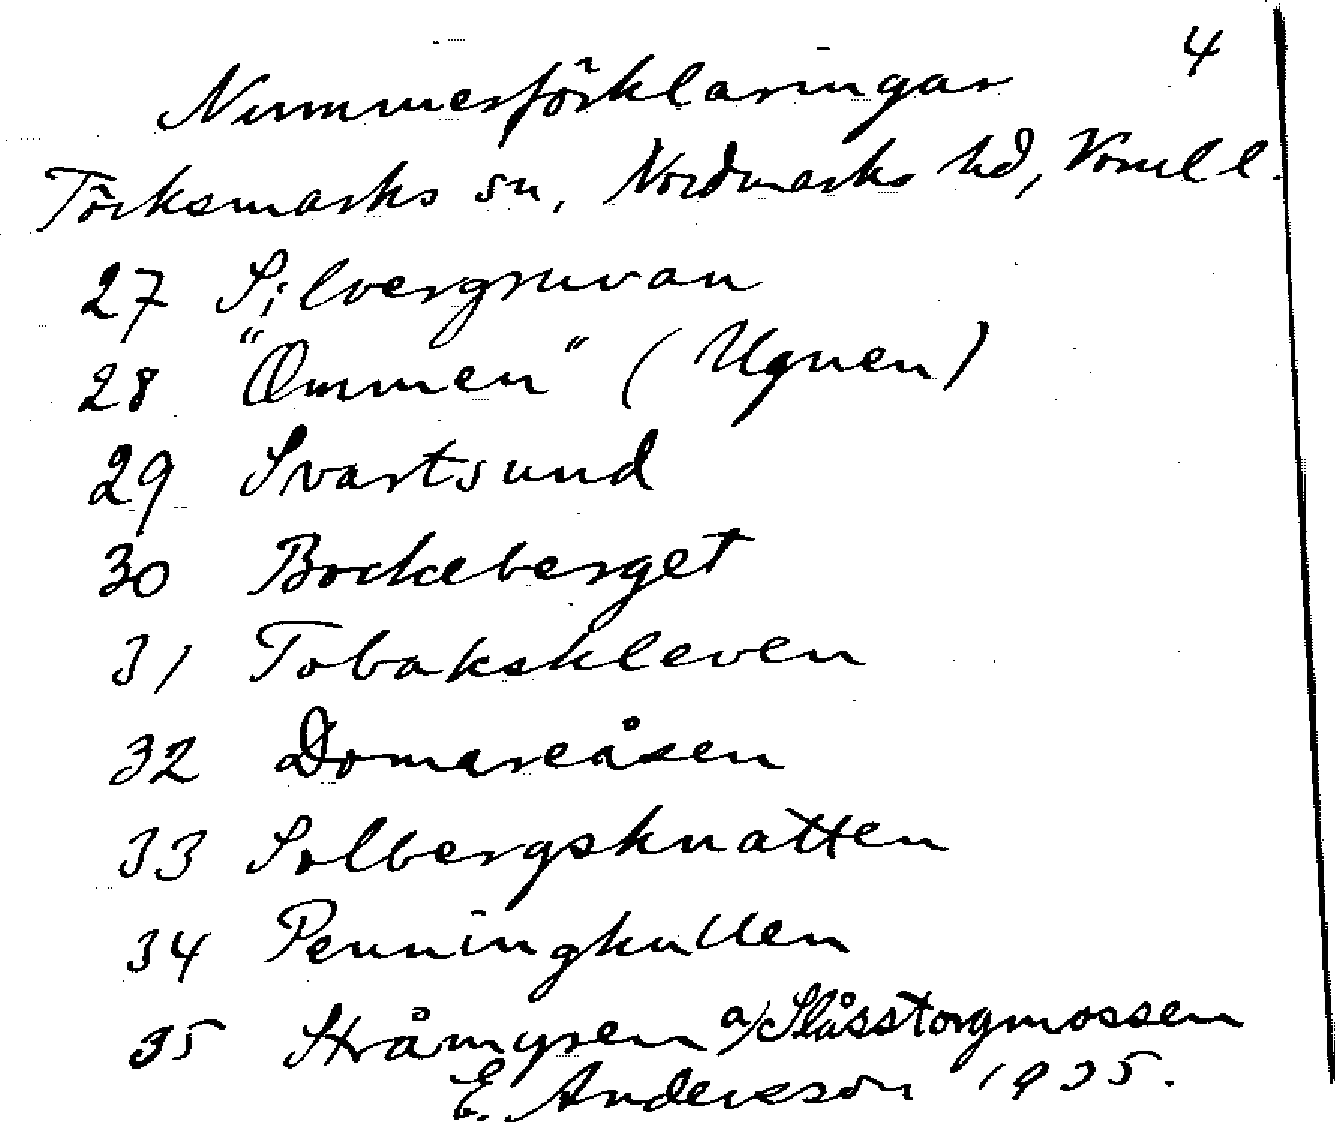 4
Nummerförklaringar
Töcksmarks sn, Nordmarks hd, Vrml l.
27 Silvergruvan
28 "Ommen" (Ugnen)
29 Svartsund
30 Bockeberget
31 Tobakskleven
32 Domareåsen
33 Solbergsknatten
34 Penningkullen
35 Stråmyren a) Slåsstorgmossen
E. Andersson 1935.